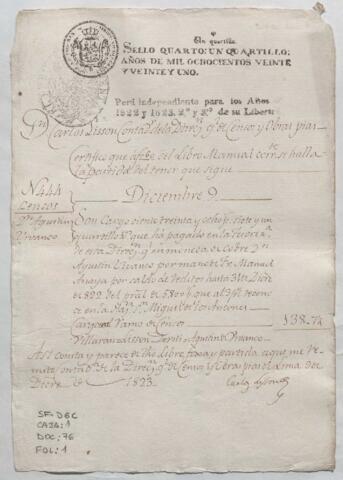 Un quartillo.
SELLO QUARTO: UN QUARTILLO;
AÑOS DE MIL OCHOCIENTOS VEINTE
Y VEINTE Y UNO.
Perú independiente para los Años
1822 y 1823. 2.º y 3.º de su Libert.
Dn Carlos Lisson Contad.r de la Direcn gl de Censos y Obras pias
Certifico que af del Libro Manual corrte se halla
la partida del tenor que sigue
N. 444 Diciembre 9
Censos
Dn Agustin Vivanco
Son Cargo ciento treinta y ocho ps siete y un
quartillo rs que ha pagado en la Tesorería
de esta Direcn gl en moneda de cobre Dn
Agustin Vivanco por mano de Dn Manuel
Anaya por saldo de reditos hasta 31 de Dice
de 822 del pral de 5800 ps que al 3 p% recono-
ce en la Hazda Sn Miguel de los Antones
Cargo al Ramo de Censos 138.7¼
Villaran Lisson Agustin Vivanco
Asi consta y parece de dho Libro foxa y partida a que me re-
mito Contad.a de la Direcn gl de Censos y Obras pias Lima
Dicre de 1823.
Carlos Lisson
SF-DBC
CAJA: 1
DOC: 76
FOL: 1